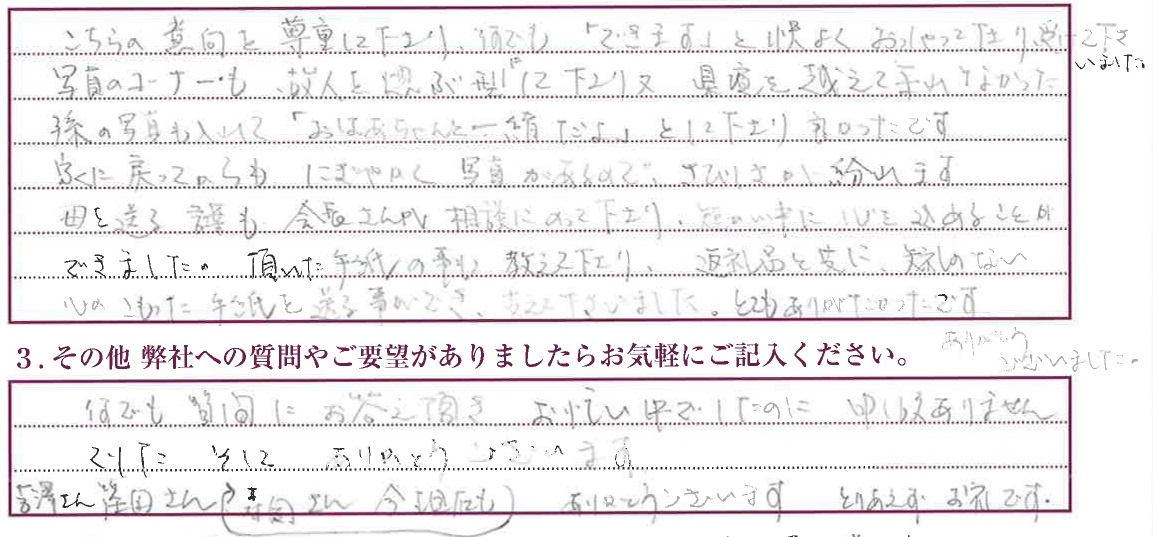 こちらの意向を尊重して下さり、何でも「できます」と快よくおっしゃって下さり、受けて下さ
いました
写真のコーナーも、故人を偲ぶ型にして下さり又 県境を越えて来れなかった
孫の写真も入れて「おばあちゃんと一緒だよ」として下さり良かったです
家に戻ってからも にぎやかく写真があるので、さびしさが紛れます
母を送る 会長さんが相談にのって下さり、短かい中に心を込めることが
できました。頂いた手紙の事も教えて下さり、返礼品と共に、失礼のない
心のこもった手紙を送る事ができ、 下さいました。とてもありがたかったです
ありがとう
ございました。
3. その他 弊社への質問やご要望がありましたらお気軽にご記入ください。
何でも質問にお答え頂き お忙しい中でしたのに 申し訳ありません
でした そして ありがとうございます
さん 篠田さん ( さん 今 も) ありがとうございます とりあえずお礼です.